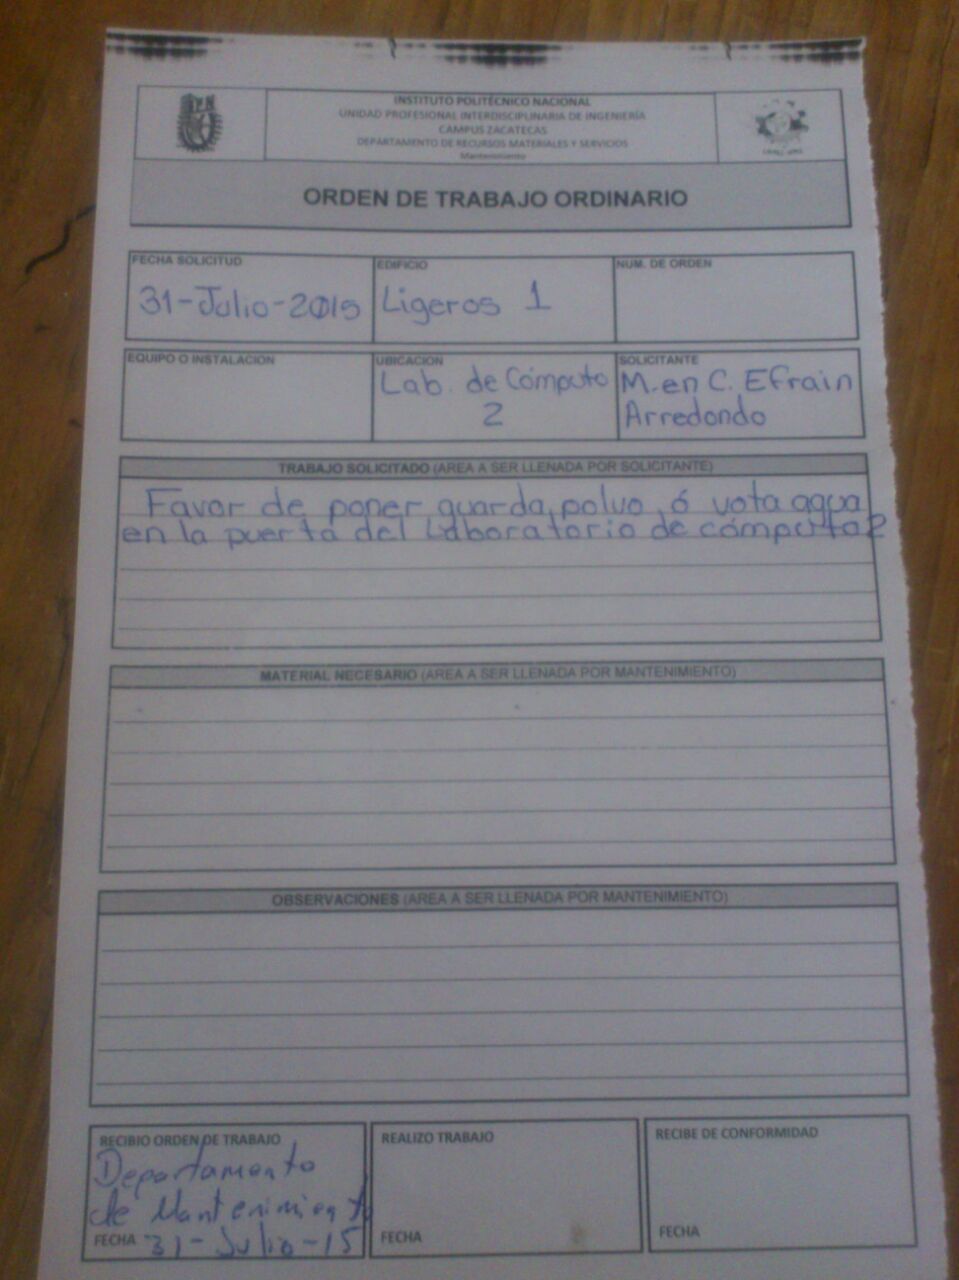 INSTITUTO POLITÉCNICO NACIONAL
UNIDAD PROFESIONAL INTERDISCIPLINARIA DE INGENIERÍA
CAMPUS ZACATECAS
DEPARTAMENTO DE RECURSOS MATERIALES Y SERVICIOS
Mantenimiento
ORDEN DE TRABAJO ORDINARIO
FECHA SOLICITUD
31-Julio-2015
EDIFICIO
Ligeros 1
NUM. DE ORDEN
EQUIPO O INSTALACION
UBICACION
Lab. de Cómputo
2
SOLICITANTE
M. en C. Efrain
Arredondo
TRABAJO SOLICITADO (AREA A SER LLENADA POR SOLICITANTE)
Favor de poner guarda polvo ó vota agua
en la puerta del Laboratorio de cómputo 2
MATERIAL NECESARIO (AREA A SER LLENADA POR MANTENIMIENTO)
OBSERVACIONES (AREA A SER LLENADA POR MANTENIMIENTO)
RECIBIO ORDEN DE TRABAJO
Departamento
de Mantenimiento
FECHA 31-Julio-15
REALIZO TRABAJO
FECHA
RECIBE DE CONFORMIDAD
FECHA